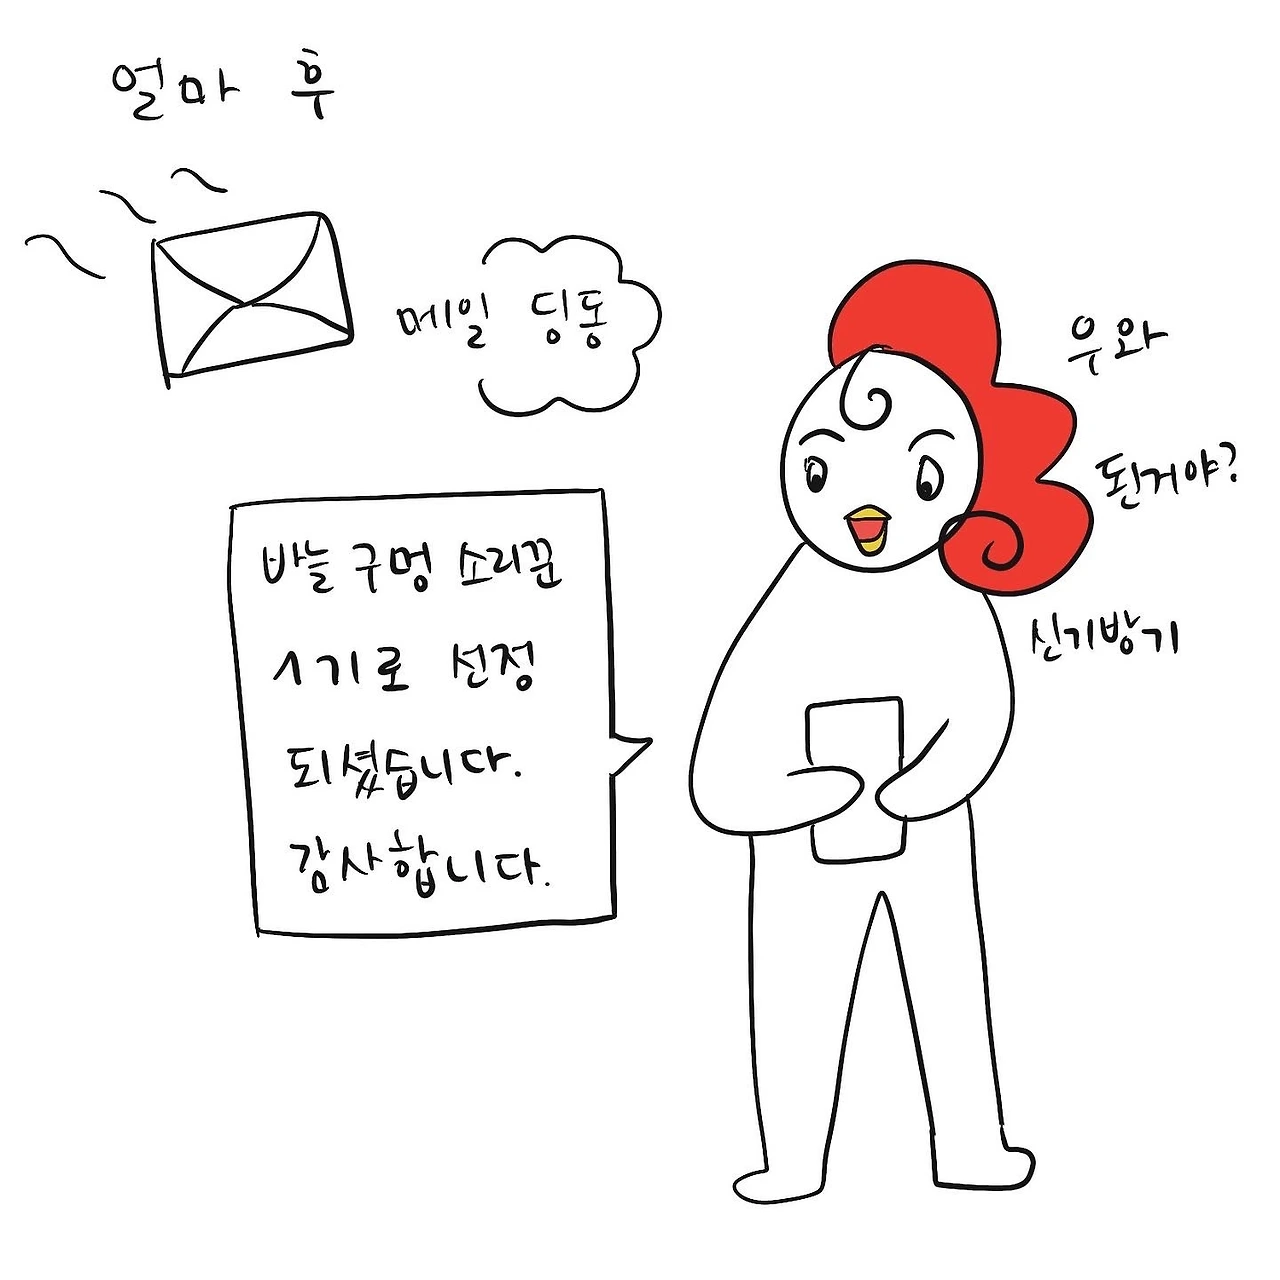 얼마 후
메일 딩동
바늘 구멍 소리꾼
1기로 선정
되셨습니다.
감사합니다.
우와
된거야?
신기방기